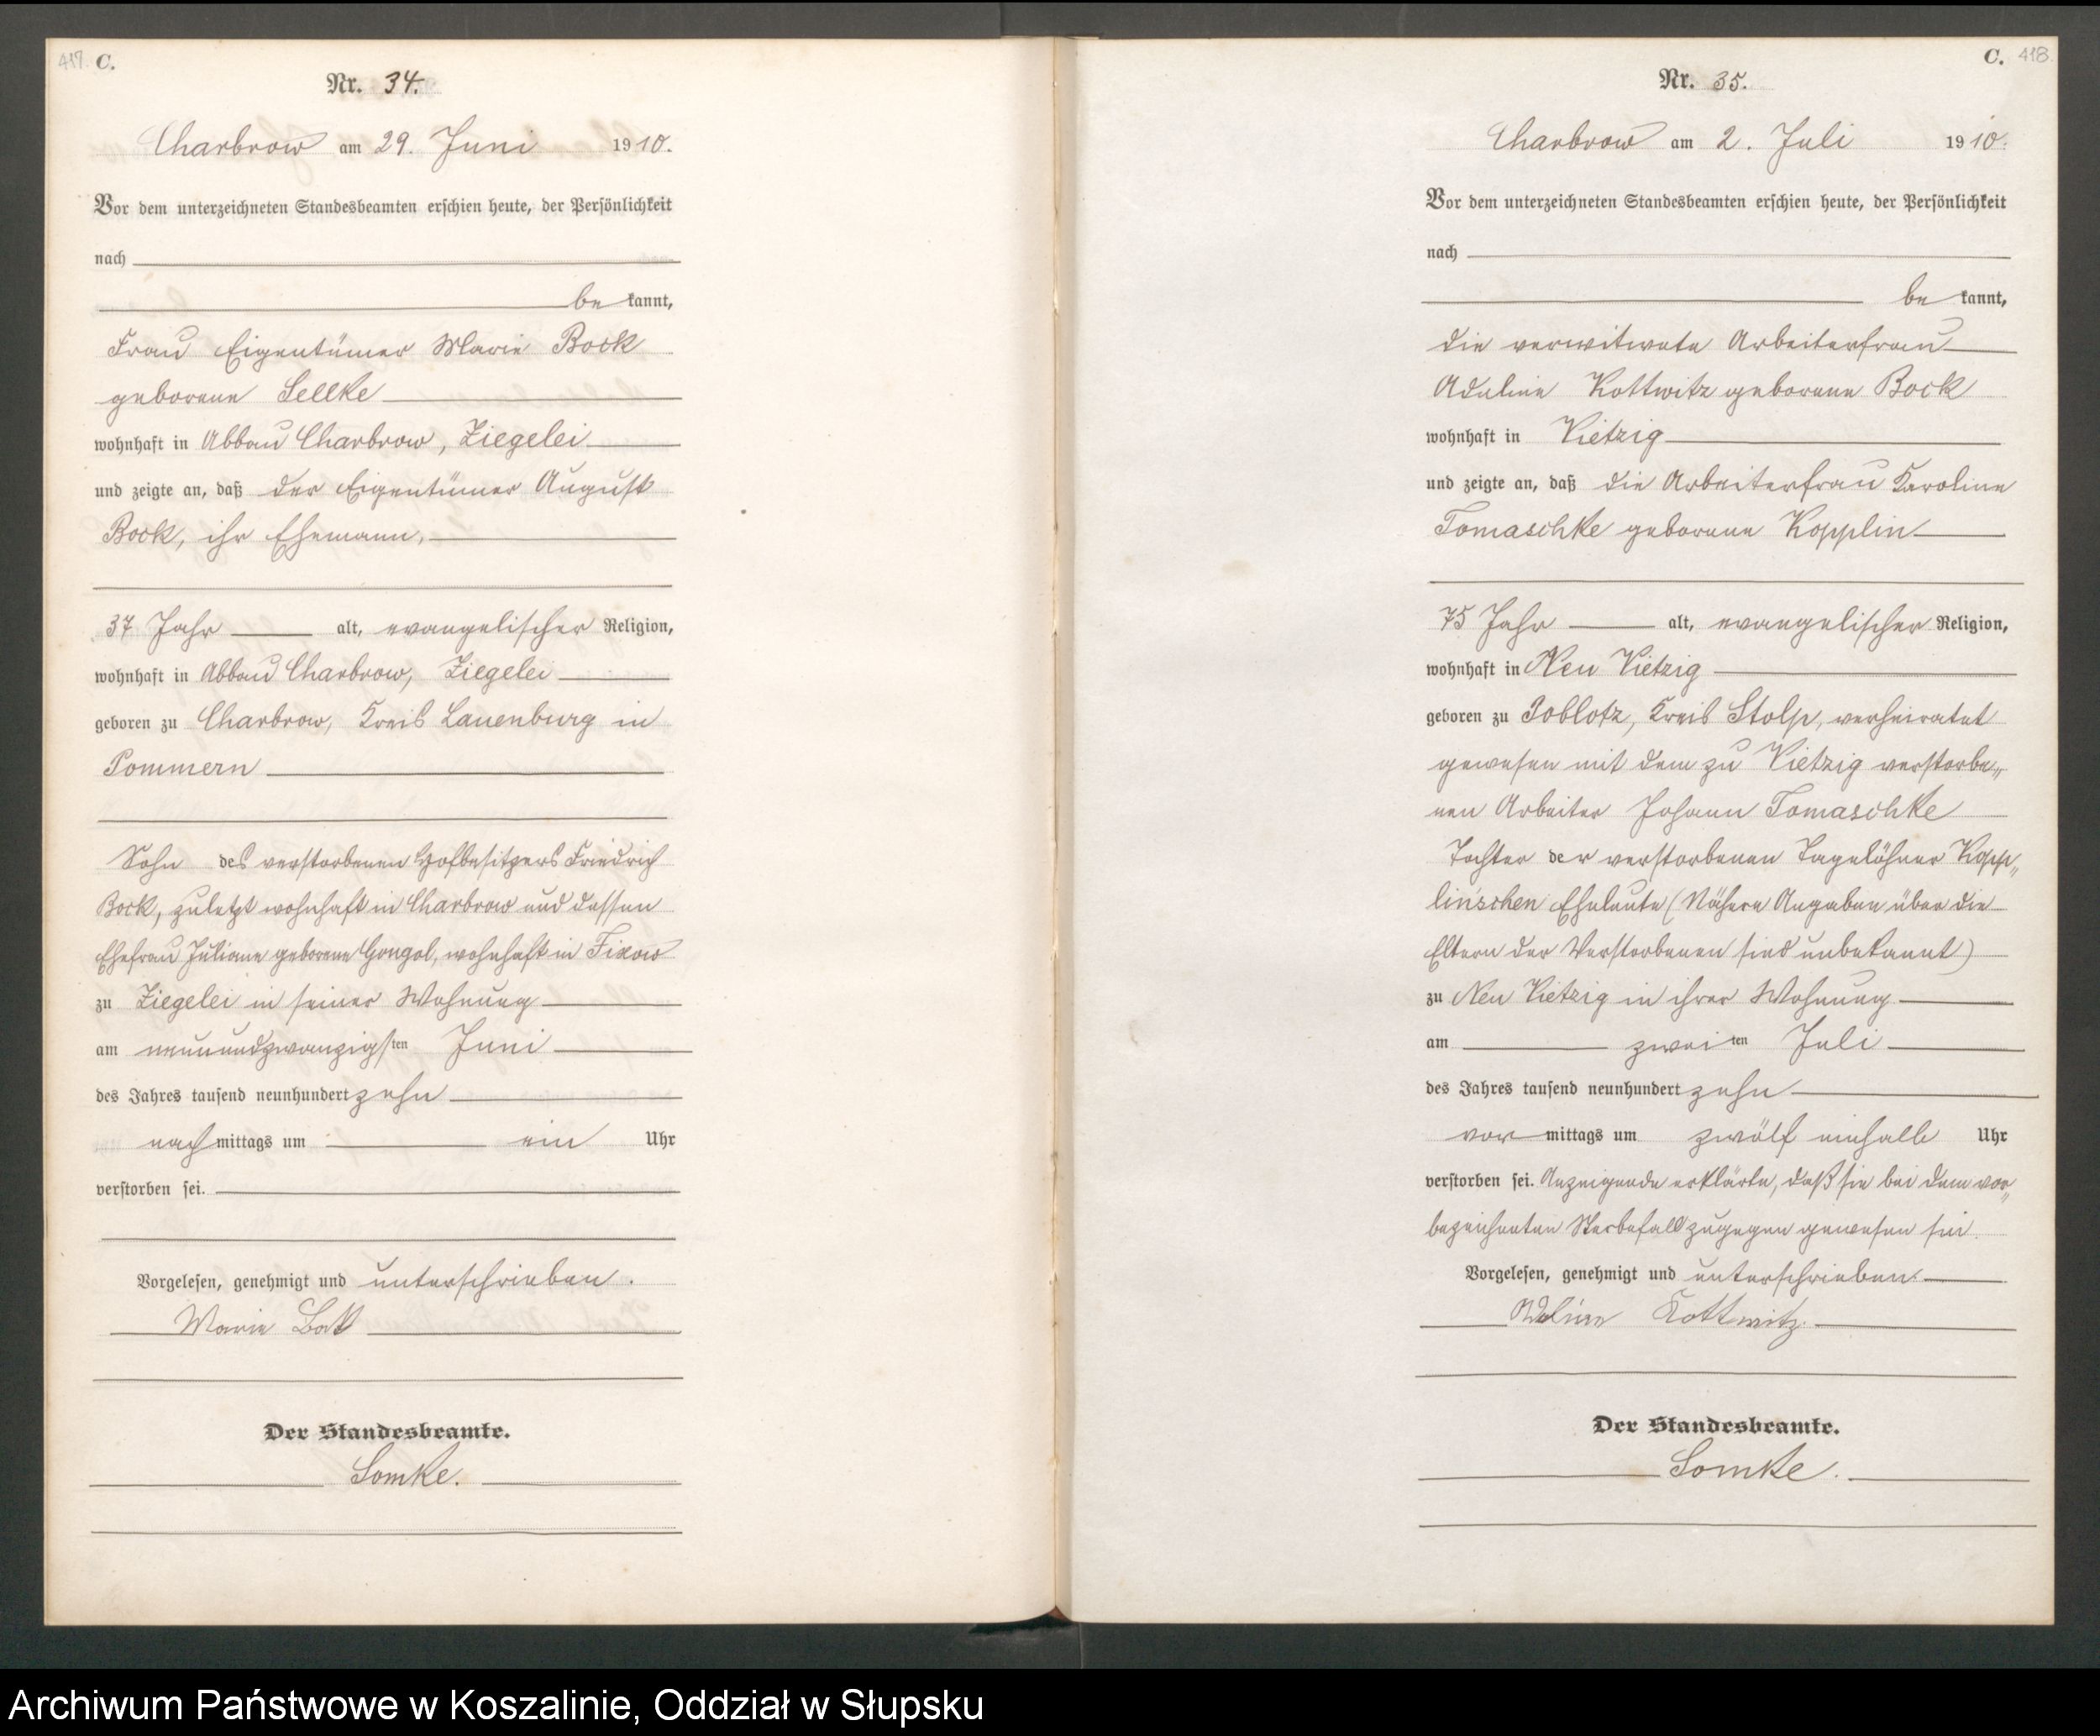 417. C.
Nr. 34.
Charbrow am 29. Juni 1910.
Vor dem unterzeichneten Standesbeamten erschien heute, der Persönlichkeit
nach
be kannt,
Frau Eigentümer Marie Bock
geborene Sellke
wohnhaft in Abbau Charbrow, Ziegelei
und zeigte an, daß der Eigentümer August
Bock, ihr Ehemann,
37 Jahr alt, evangelischer Religion,
wohnhaft in Abbau Charbrow, Ziegelei
geboren zu Charbrow, Kreis Lauenburg in
Pommern
Sohn des verstorbenen Hofbesitzers Friedrich
Bock, zuletzt wohnhaft in Charbrow und dessen
Ehefrau Juliane geborene Gongol, wohnhaft in Fixow
zu Ziegelei in seiner Wohnung
am neunundzwanzigsten Juni
des Jahres tausend neunhundert zehn
nachmittags um ein Uhr
verstorben sei.
Vorgelesen, genehmigt und unterschrieben.
Marie Bock
Der Standesbeamte.
Somke.
C. 418
Nr. 35.
Charbrow am 2. Juli 1910.
Vor dem unterzeichneten Standesbeamten erschien heute, der Persönlichkeit
nach
be kannt,
die verwitwete Arbeiterfrau
Adeline Kottwitz geborene Bock
wohnhaft in Vietzig
und zeigte an, daß die Arbeiterfrau Karoline
Tomaschke geborene Kopplin
75 Jahr alt, evangelischer Religion,
wohnhaft in Neu Vietzig
geboren zu Poblotz, Kreis Stolp, verheiratet
gewesen mit dem zu Vietzig verstorbe„
nen Arbeiter Johann Tomaschke
Tochter der verstorbenen Tagelöhner Kopp„
lin'schen Eheleute (Nähere Angaben über die
Eltern der Verstorbenen sind unbekannt)
zu Neu Vietzig in ihrer Wohnung
am zweiten Juli
des Jahres tausend neunhundert zehn
vormittags um zwölf einhalb Uhr
verstorben sei. Anzeigende erklärte, daß sie bei dem vor„
bezeichneten Sterbefall zugegen gewesen sei.
Vorgelesen, genehmigt und unterschrieben.
Adeline Kottwitz.
Der Standesbeamte.
Somke.
Archiwum Państwowe w Koszalinie, Oddział w Słupsku